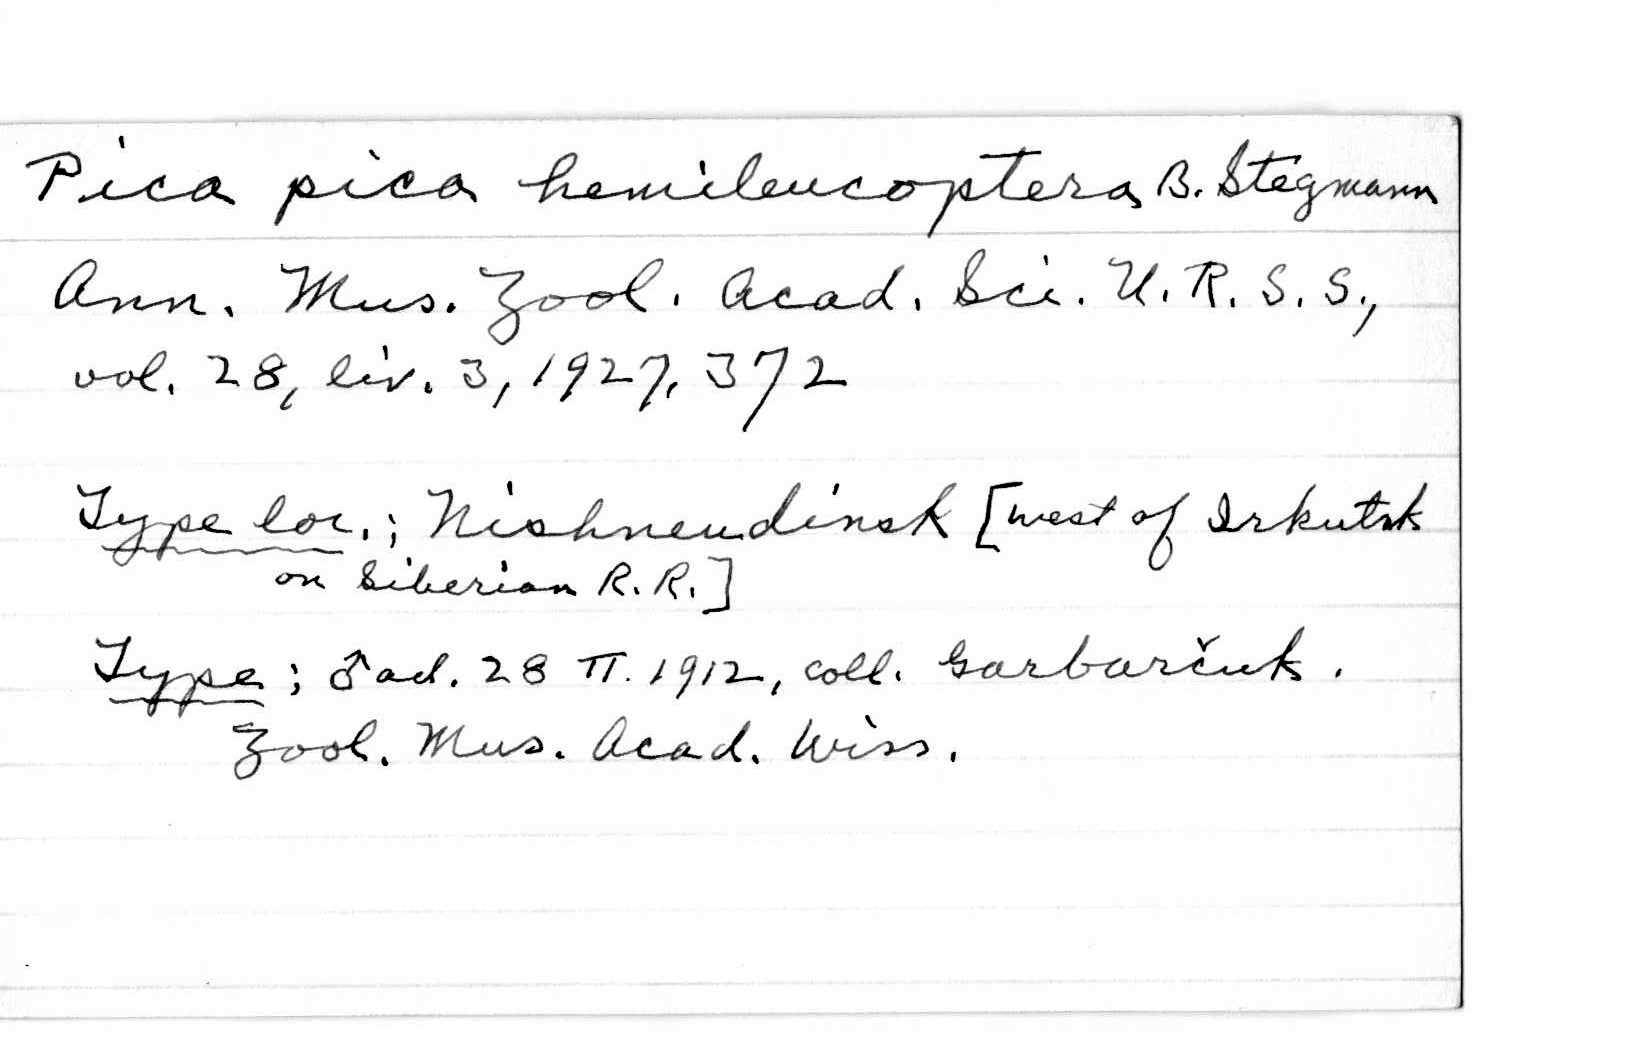 Pica pica hemileucoptera B. Stegmann
Ann. Mus. Zool. Acad. Sci. U.R.S.S.,
vol. 28, liv. 3, 1927, 372
Type loc.; Nishneudinsk [west of Irkutsk
on Siberian R.R.]
Type; ♂ ad. 28 II. 1912, coll. Garbarčuk.
Zool. Mus. Acad. Wiss.